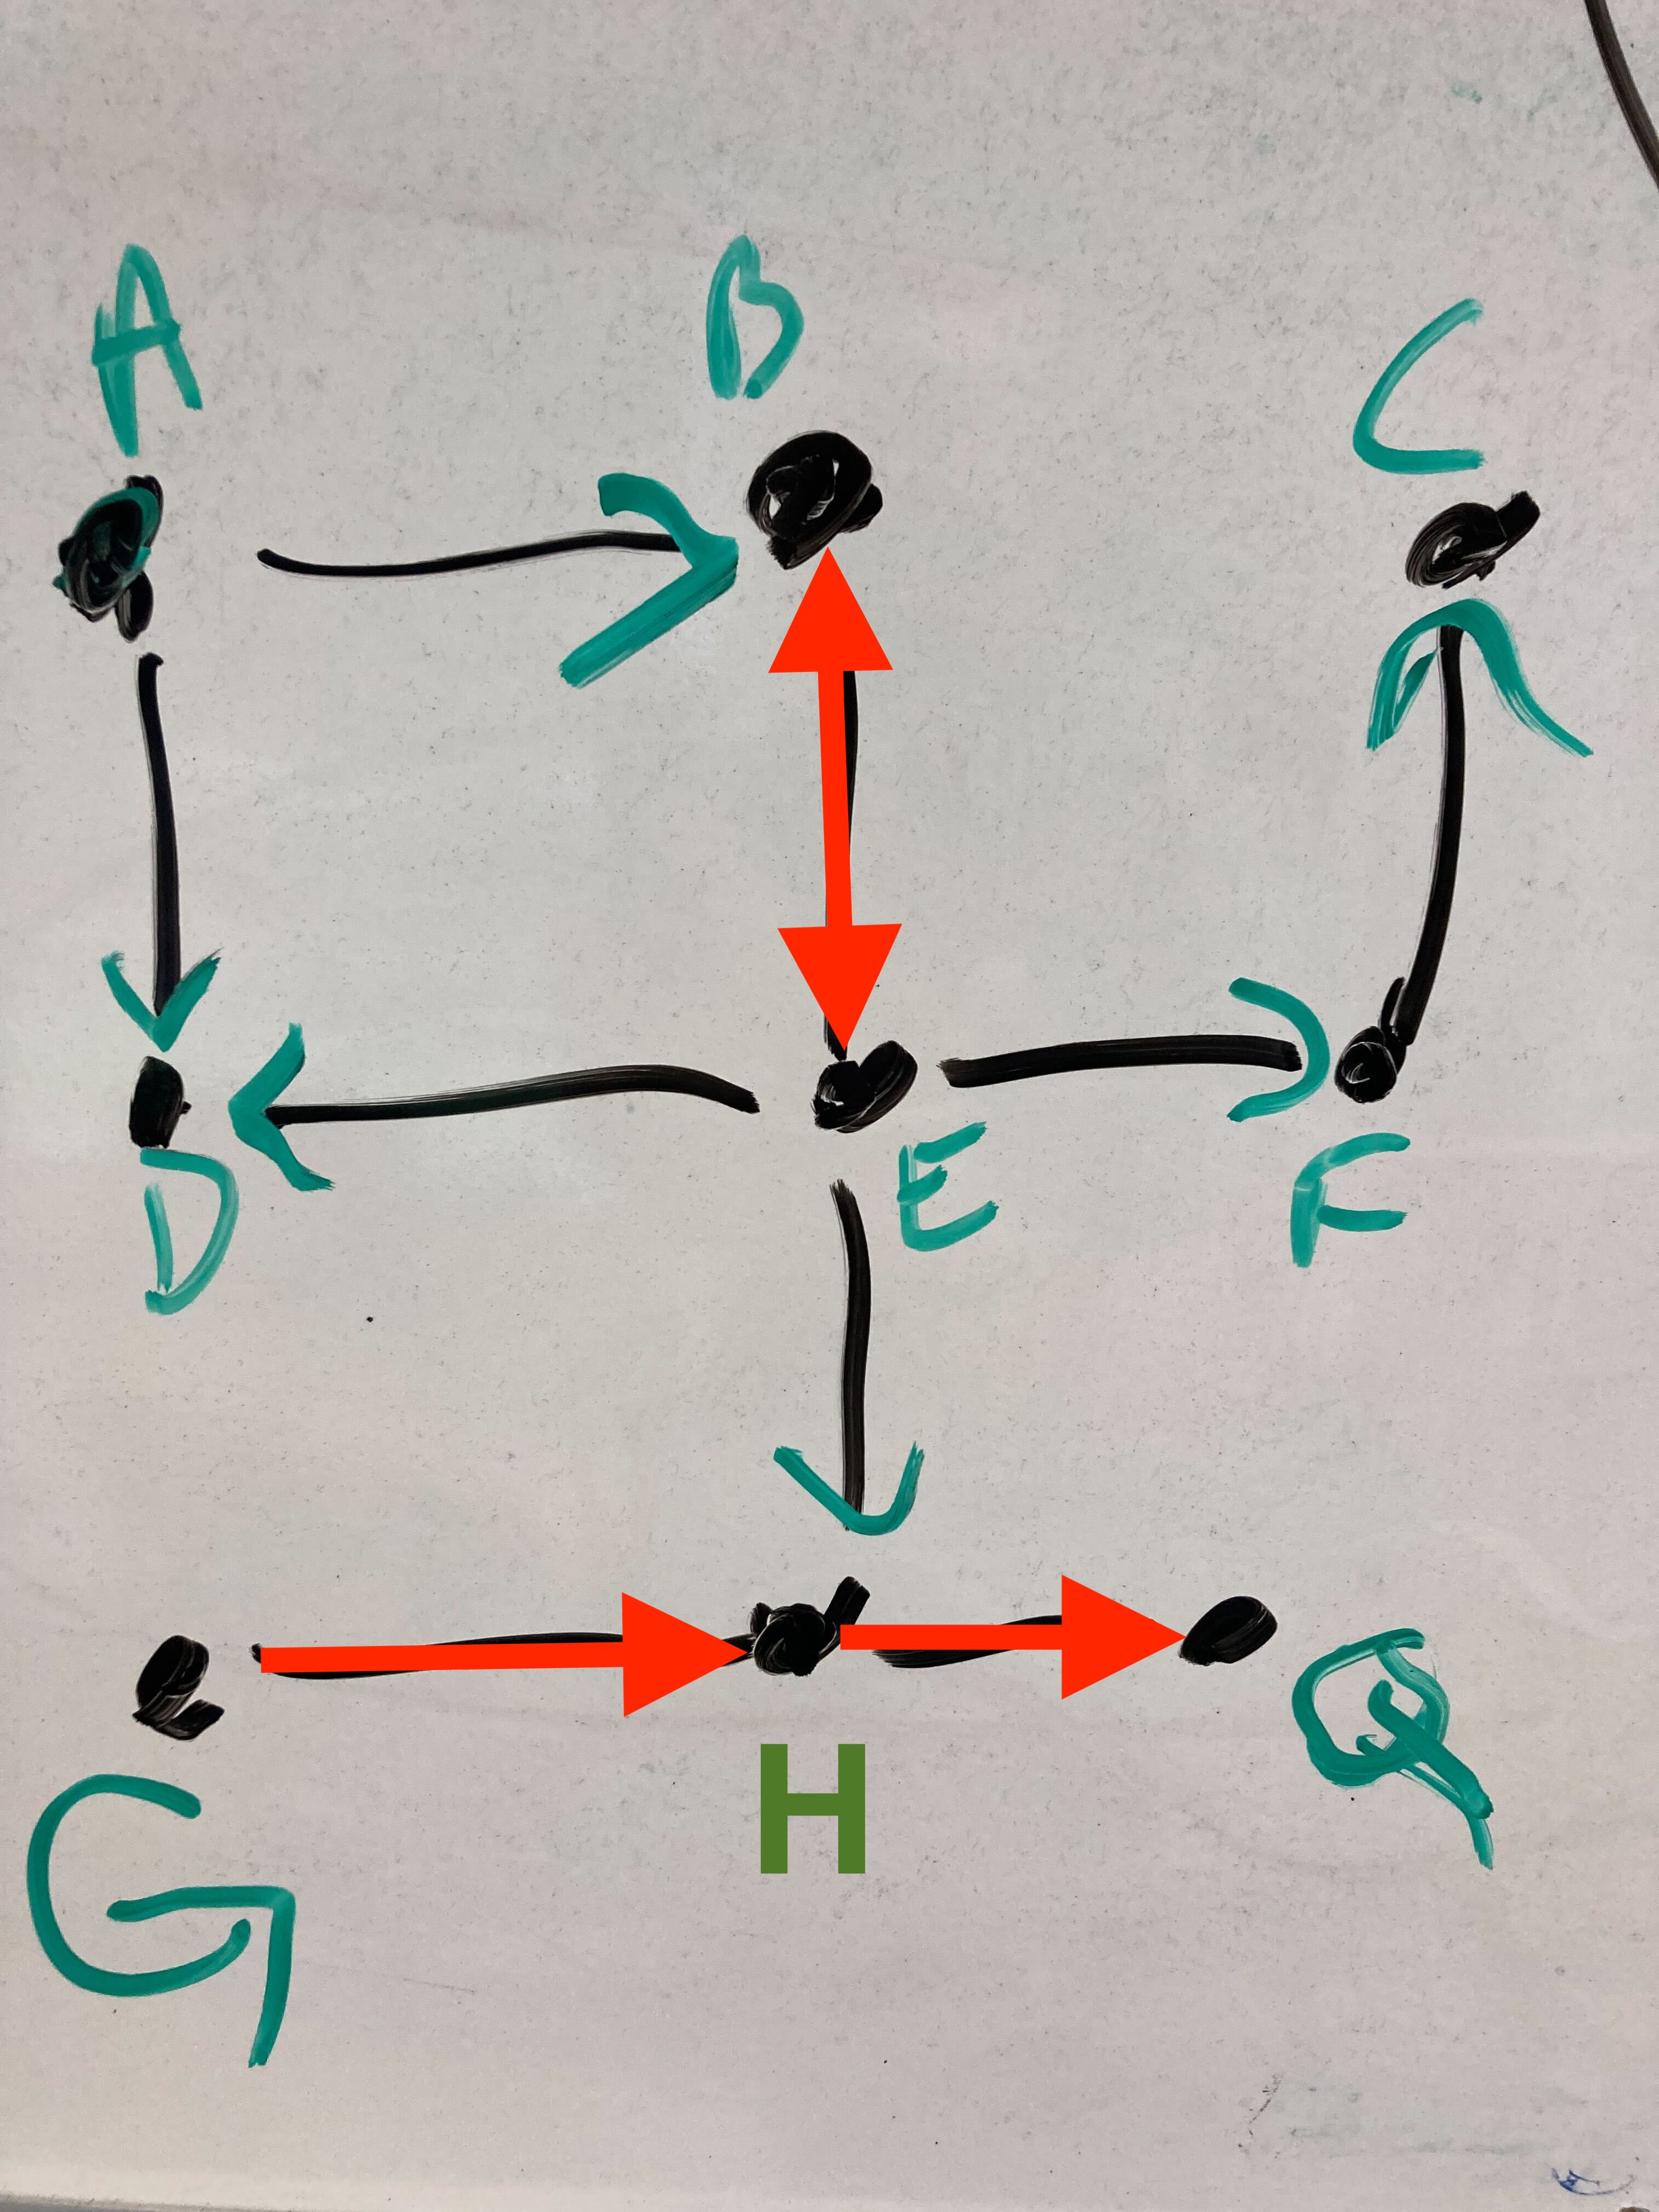 A B C
D E F
G H Q